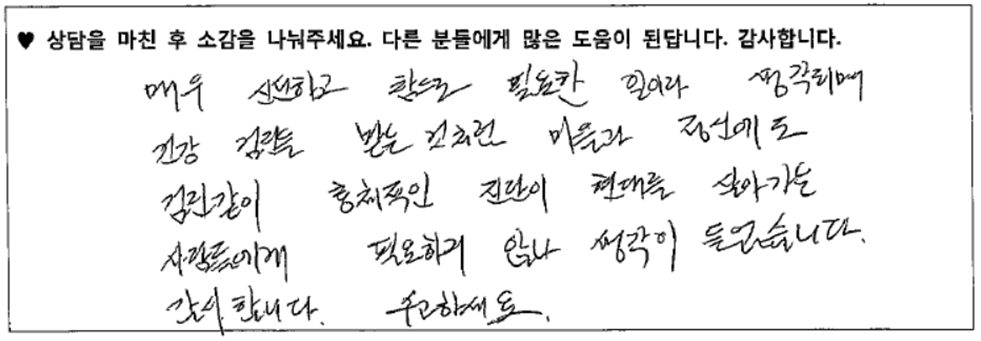 ♥ 상담을 마친 후 소감을 나눠주세요. 다른 분들에게 많은 도움이 된답니다. 감사합니다.
매우 신선하고 참으로 필요한 일이라 생각되며
건강 검진을 받는 것처럼 마음과 정신에도
검진같이 총체적인 진단이 현대를 살아가는
사람들에게 필요하지 않나 생각이 들었습니다.
감사합니다. 수고하세요.